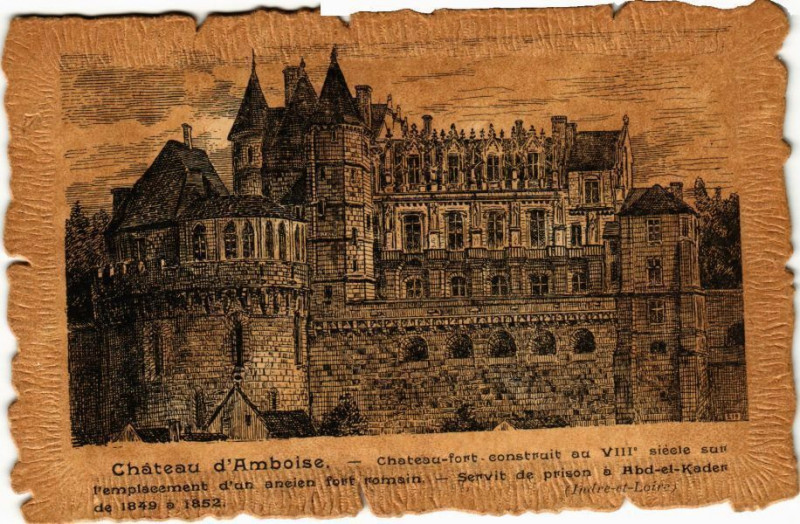 Château d'Amboise. — Chateau-fort construit au VIIIᵉ siècle sur
l'emplacement d'un ancien fort romain. — Servit de prison à Abd-el-Kader
de 1849 à 1852.
(Indre-et-Loire)